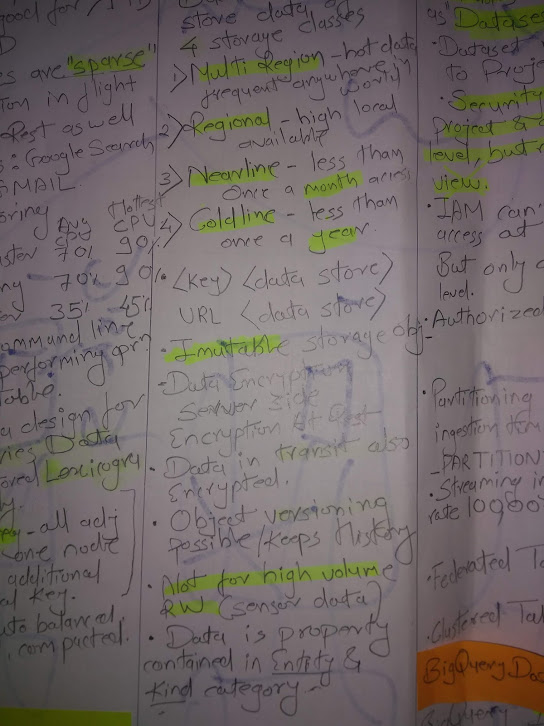 good for
D
es are "sparse"
ion in flight
Rest as well
s: Google Search,
GMAIL.
oring Avg Hottest
CPU CPU
uster 70% 90%
ng 70% 90%
er 35% 45%
ommand line
performing
table.
a design for
ries Data
ored Lexicogra
y.
- all adj
one node
additional
al key.
uto balanced
compacted.
store data of
4 storage classes
1) Multi Region - hot data
frequent anywhere in
world
2) Regional - high local
available
3) Nearline - less than
once a month access
4) Coldline - less than
once a year.
<key> <data store>
URL <data store>
Imutable storage obj
- Data Encryption
Server side
Encryption at Rest
Data in transit also
Encrypted.
Object versioning
possible/keeps History
Not for high volume
RW (sensor data)
Data is property
contained in Entity &
Kind category
as "Datases
Dataset
to Proje
Security
project &
level, but
view.
IAM can'
access at
But only
level.
Authorized
Partitioning
ingestion tim
_PARTITION
Streaming in
rate
Federated Ta
Clustered Tal
BigQuery Doc